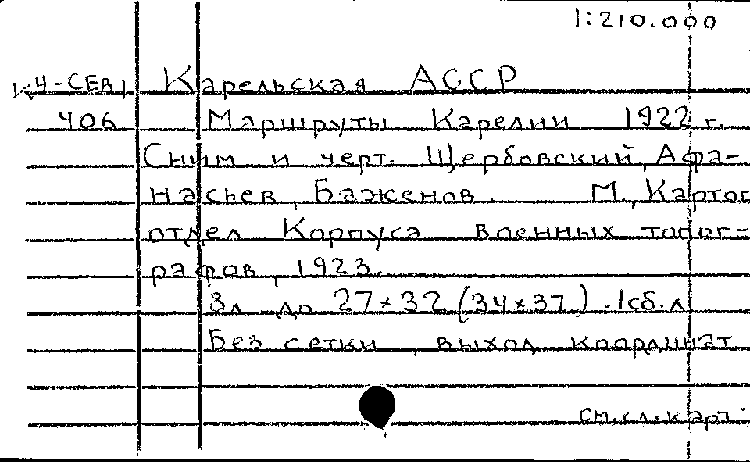 1:210.000
К4-СЕВ, Карельская АССР
406 Маршруты Карелии 1922 г.
Сним и черт. Щербовский, Афа-
насьев, Баженов. М., Картог
отдел Корпуса военных топог-
рафов, 1923.
8л до 27×32 (34×37). 1сб.л
Без сетки, выход координат
см.кл.карт.